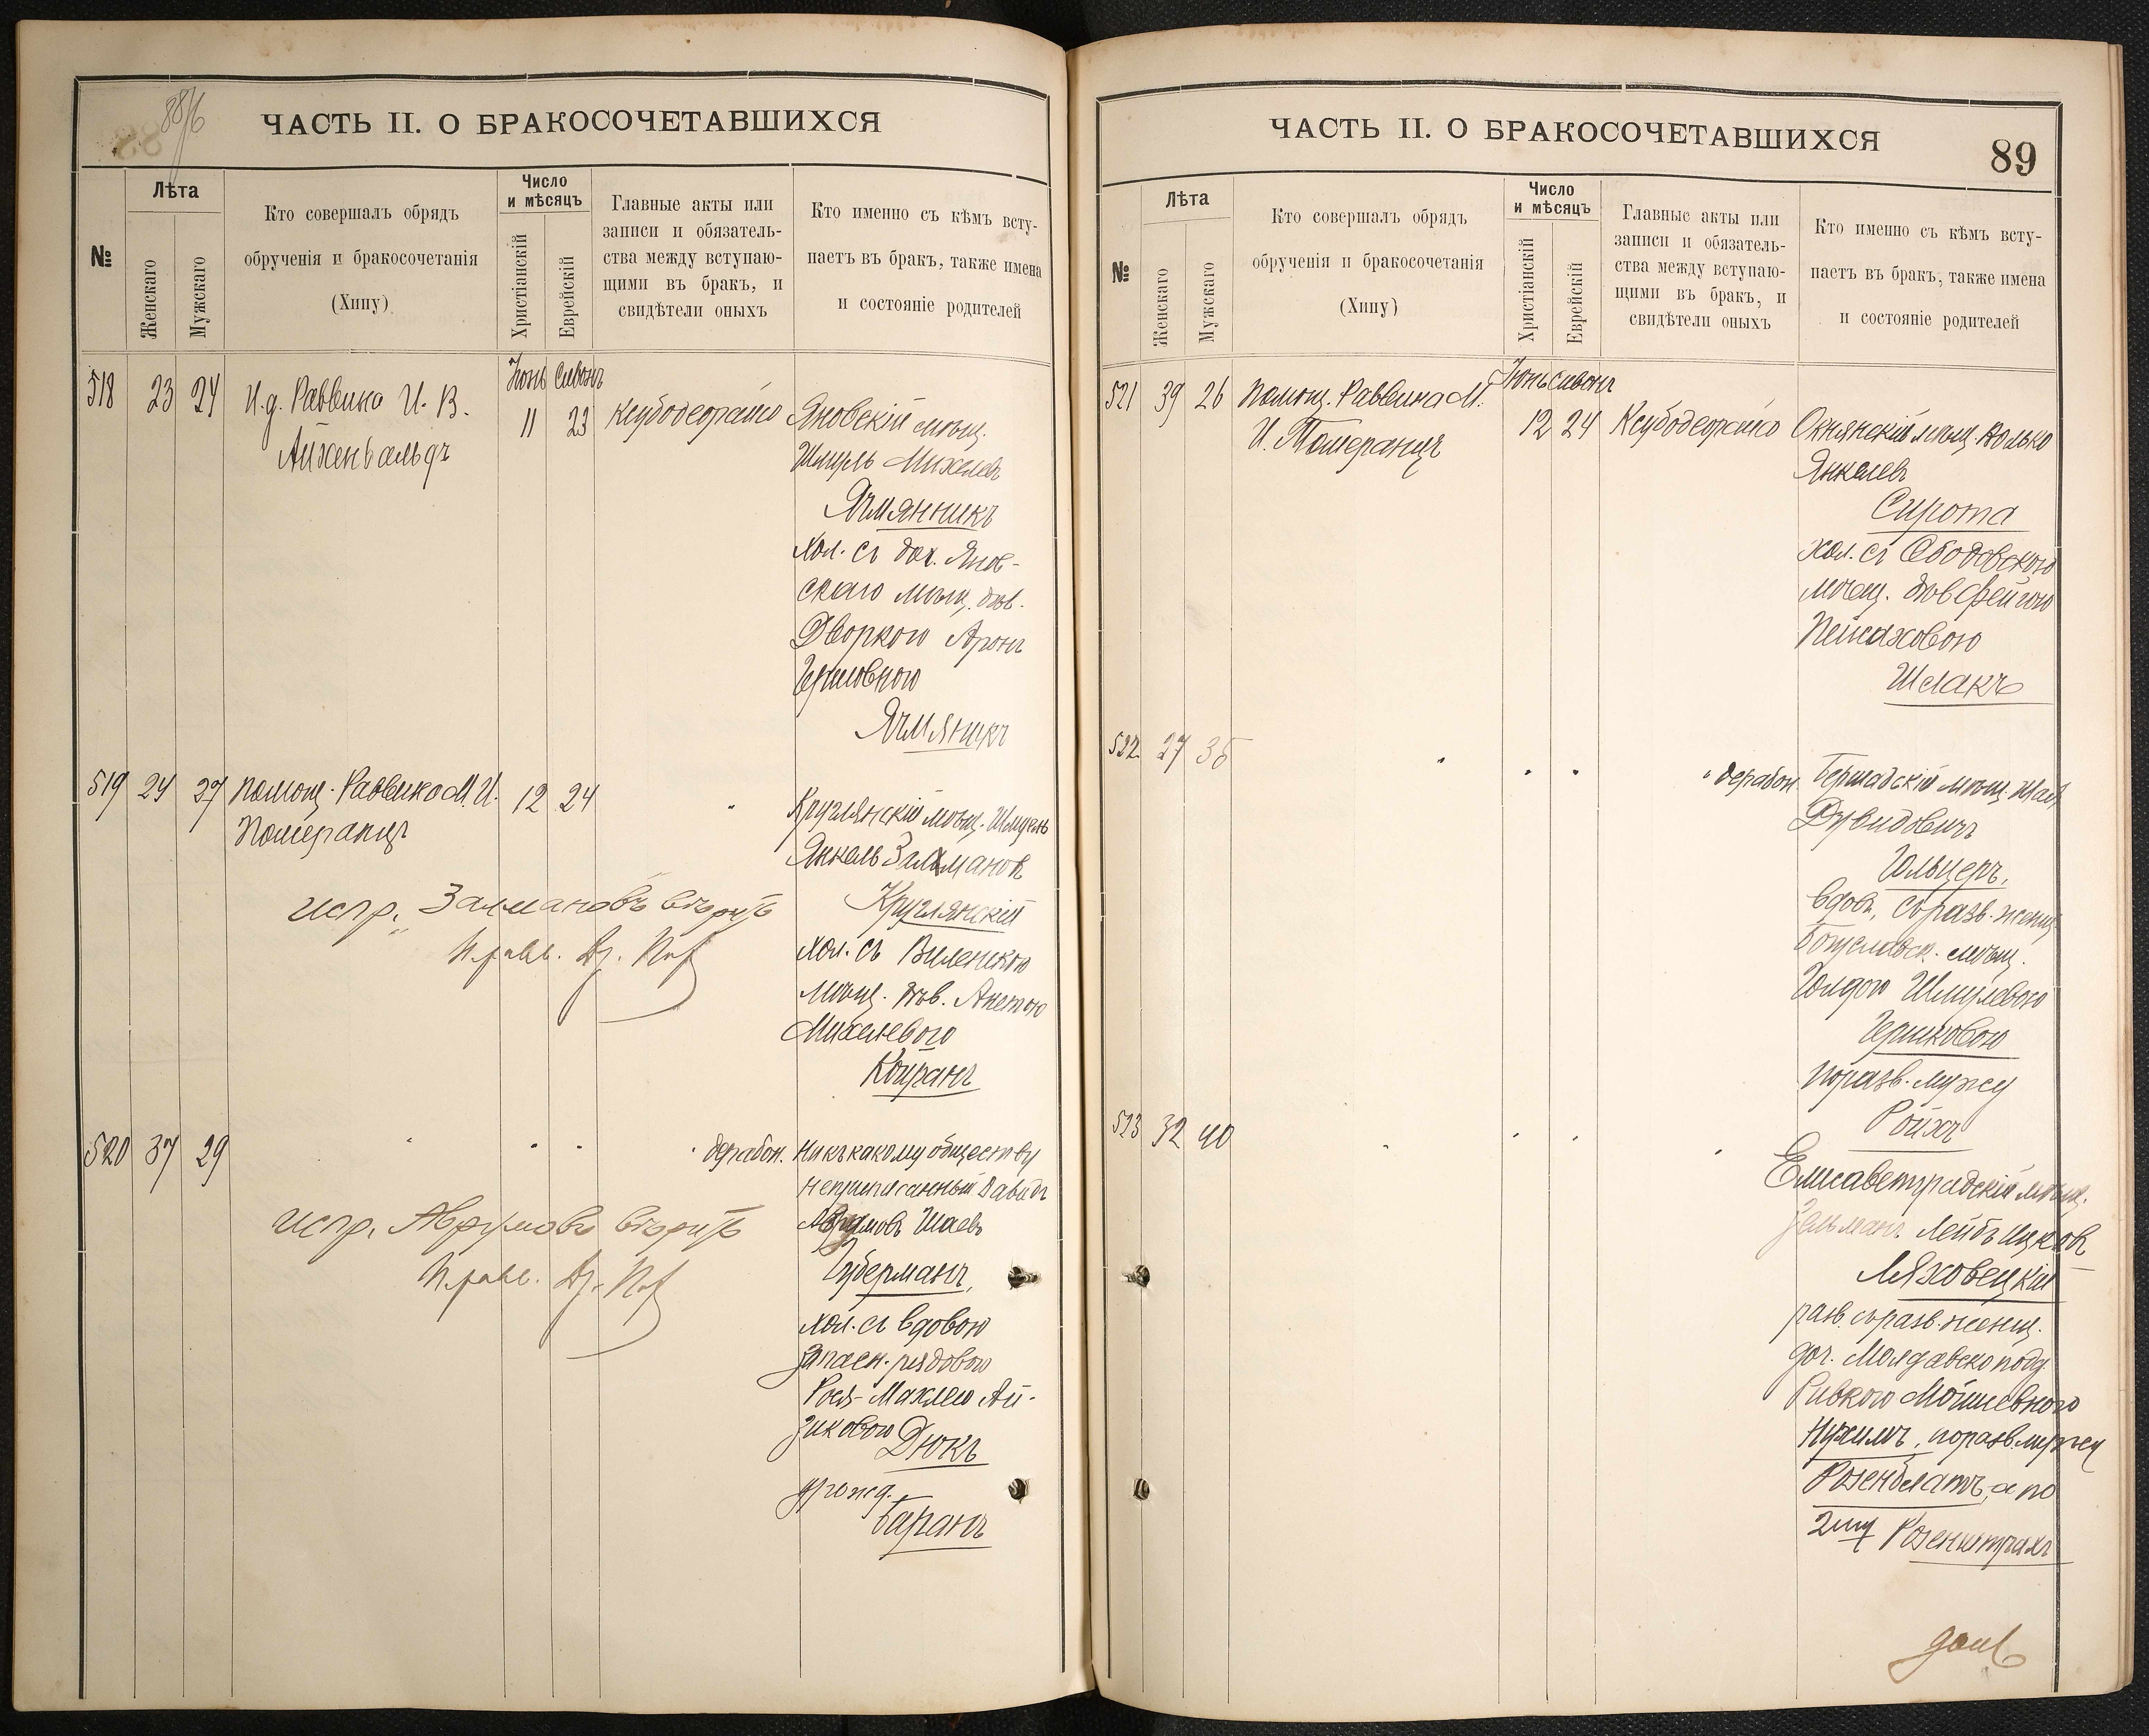 88/6
ЧАСТЬ II. О БРАКОСОЧЕТАВШИХСЯ
№
Лѣта
Женскаго
Мужскаго
Кто совершалъ обрядъ
обрученія и бракосочетанія
(Хипу)
Число
и мѣсяцъ
Христіанскій
Еврейскій
Главные акты или
записи и обязатель-
ства между вступаю-
щими въ бракъ, и
свидѣтели оныхъ
Кто именно съ кѣмъ всту-
паетъ въ бракъ, также имена
и состояніе родителей
Іюнь Сивонъ
518 23 24 И.д. Раввина И. В.
Айхенвальдъ
11 23
Ксубодеорайсо
Яновскій мѣщ.
Шмуль Михелев
Ячмянникъ
хол. съ доч. Янов-
скаго мѣщ. дѣв.
Дворкою Аронъ
Гершовною
Ячмяникъ
519 24 27 Помощ. Раввина М. И.
Померанцъ
12 24 "
Круглянскій мѣщ. Шмуень
Янкель Залманов
Круглянскій
хол. съ Виленскою
мѣщ. дѣв. Анетою
Михелевою
Койранъ
испр. Залмановъ вѣрить
И. равв. Др.
520 37 29 " " "
" дерабон.
Ни къ какому обществу
неприписанный Давидъ
Аврумовъ Шаевъ
Губерманъ,
хол. съ вдовою
запасн. рядового
Рося-Махлею Ай-
зиковою Дюкъ
урожд.
Баранъ
испр. Аврумовъ вѣрить
И. равв. Др.
ЧАСТЬ II. О БРАКОСОЧЕТАВШИХСЯ
89
№
Лѣта
Женскаго
Мужскаго
Кто совершалъ обрядъ
обрученія и бракосочетанія
(Хипу)
Число
и мѣсяцъ
Христіанскій
Еврейскій
Главные акты или
записи и обязатель-
ства между вступаю-
щими въ бракъ, и
свидѣтели оныхъ
Кто именно съ кѣмъ всту-
паетъ въ бракъ, также имена
и состояніе родителей
Іюнь Сивонъ
521 39 26 Помощ. Раввина М.
И. Померанцъ
12 24 Ксубодеорайсо
Окнянскій мѣщ. Волько
Янкелев
Сирота
хол. съ Ободовскою
мѣщ. дѣв Фейгою
Пейсаховою
Шлакъ
522 27 35 " " "
" дерабон.
Бершадскій мѣщ.
Дувидовичъ
Гольцеръ,
вдов. съ разв. женщ.
мѣщ.
Голдою Шмулевою
Гершковою
по разв. мужу
Ройхъ
523 32 40 " " " "
Елисаветградскій мѣщ.
Зельманъ Лейбъ Ицков
Ляховецкій
разв. съ разв. женщ.
доч. Молдавскопод.
Ривкою Мошковною
Нухимъ, по разв. мужу
Розенблатъ, а по
2му Розенштрахъ